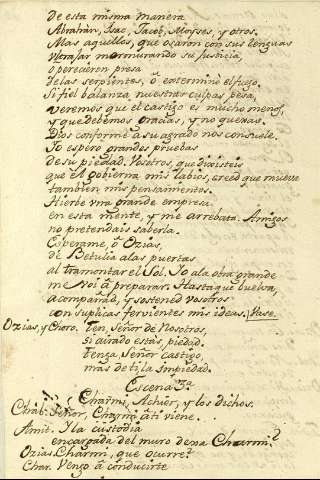 De esta misma manera
Abrahàn, Isac, Jacob, Moyses, y otros.
Mas aquellos, que osaron con sus lenguas
ultrajar murmurando su justicia,
o perecieron presa
de las serpientes, ô exterminô el fuego.
Si fiel balanza nuestras culpas pesa,
veremos que el castigo es mucho menos,
y que debemos gracias, y no quexas.
Dios conforme a su agrado nos consuele.
Yo espero grandes pruebas
de su piedad. Vosotros, que dixisteis
que èl gobierna mis labios, creed que mueve
tambien mis pensamientos.
Hierbe una grande empresa
en esta mente, y me arrebata. Amigos
no pretendais saberla.
Esperame, ô Ozias,
de Betulia a las puertas
al tramontar el Sol. Yo a la obra grande
me voi â preparar. Hasta que buelva,
acompañad, y sostened vosotros
con suplicas fervientes mis ideas. Vase.
Ozias, y Choro. Ten, Señor de Nosotros,
si airado estàs, piedad.
Tenga, Señor castigo,
mas de ti la impiedad.
Escena 3ª
Charmi, Achiòr, y los dichos.
Cabr. Señor, Charmi â ti viene.
Amit. Y la custodia
encargada del muro dexa Charmi?
Ozias Charmi, que ocurre?
Char. Vengo â conducirte